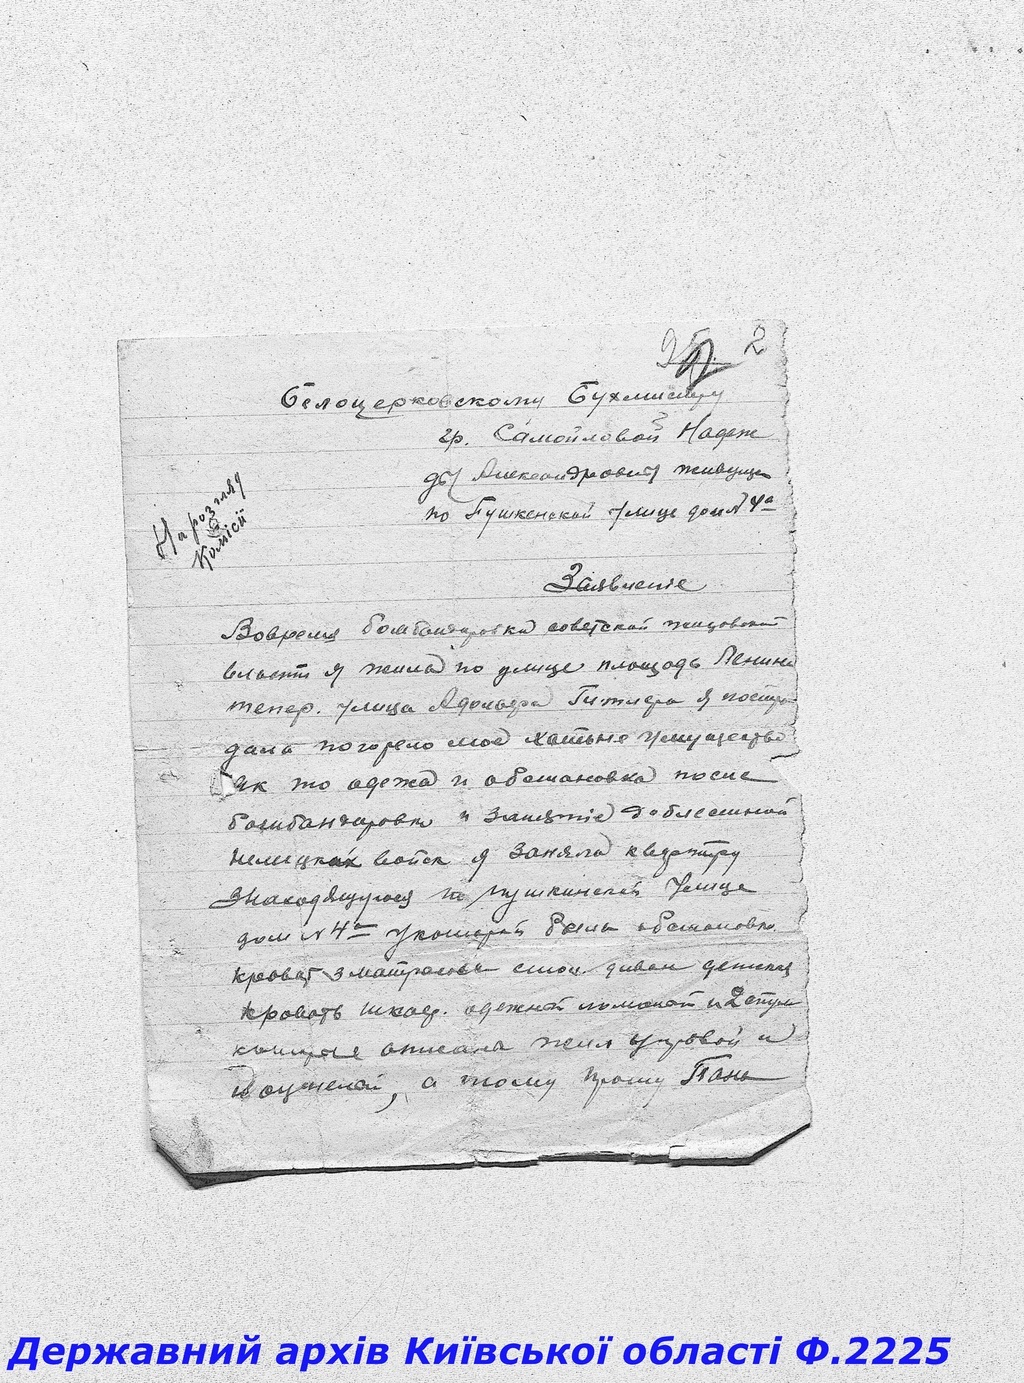 2
Белоцерковскому Бухмистру
гр. Самойловой Надеж
ды Александровны живуще
по Пушкенской улице дом N 4а
На розгляд
Комісії
Заявление
Вовремя бомбандировки советской жидовской
власти я жила по улице площадь Ленина
тепер. улица Адольфа Гитлера я постра
дала погорело мое имущество
як то одежа и обстановка после
бомбандировки и занятие доблестной
немецких войск я заняла квартиру
знаходящуюся по пушкинской улице
дом N 4а укоторой была обстановка
кровать зматрасом стол диван детская
кровать шкаф. одежной и 2 стула
которые описала жил управой и
а тому прошу Пане
Державний архів Київської області Ф.2225